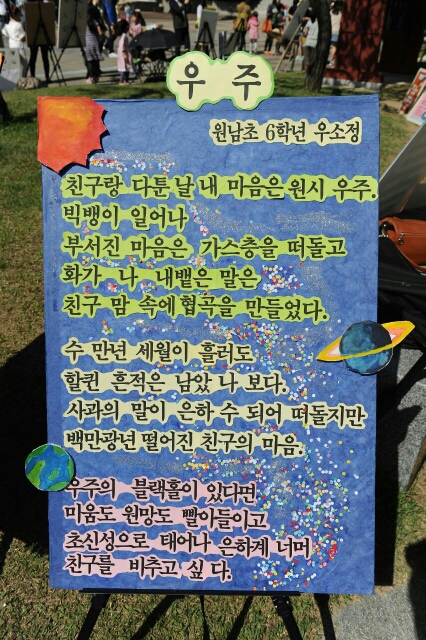 우주
원남초 6학년 우소정
친구랑 다툰 날 내 마음은 원시 우주.
빅뱅이 일어나
부서진 마음은 가스층을 떠돌고
화가 나 내뱉은 말은
친구 맘 속에 협곡을 만들었다.
수 만년 세월이 흘러도
할퀸 흔적은 남았 나 보다.
사과의 말이 은하 수 되어 떠돌지만
백만광년 떨어진 친구의 마음.
우주의 블랙홀이 있다면
미움도 원망도 빨아들이고
초신성으로 태어나 은하계 너머
친구를 비추고 싶 다.